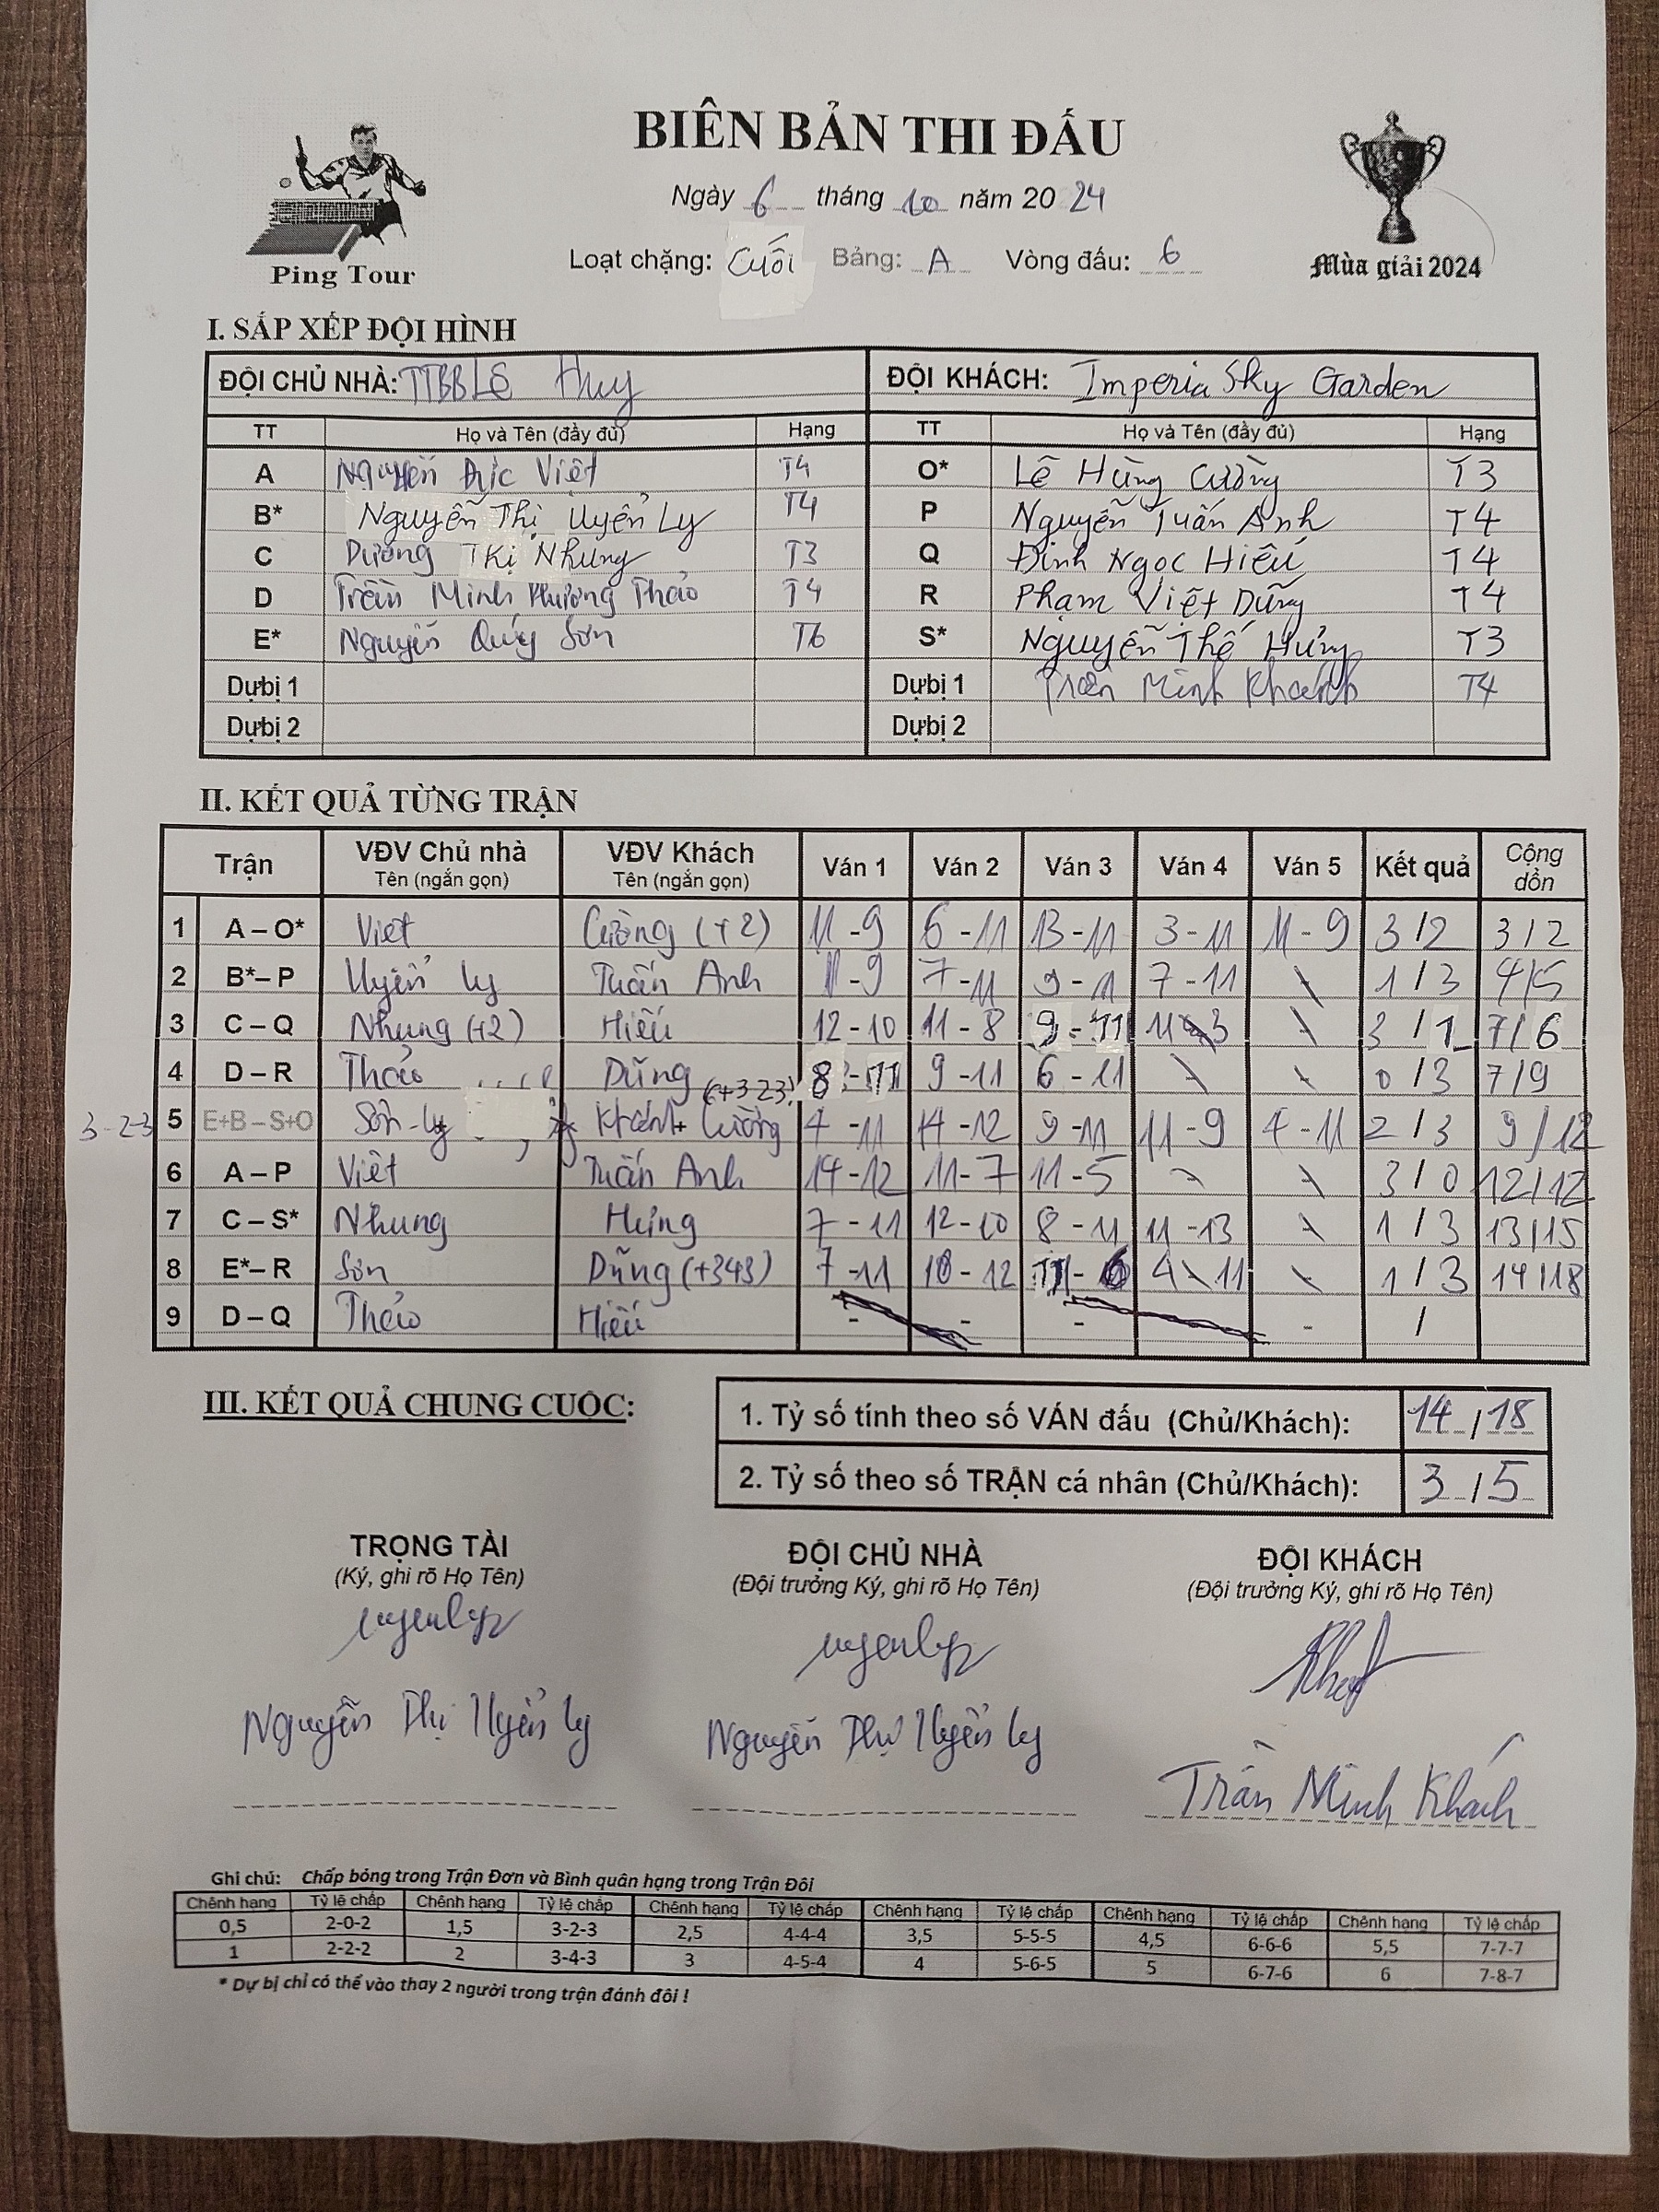 BIÊN BẢN THI ĐẤU
Ngày 6 tháng 10 năm 20 24
Ping Tour
Loạt chặng: Cuối Bảng: A Vòng đấu: 6
Mùa giải 2024
I. SẮP XẾP ĐỘI HÌNH
ĐỘI CHỦ NHÀ: TTBB Lê Huy ĐỘI KHÁCH: Imperia Sky Garden
TT Họ và Tên (đầy đủ) Hạng TT Họ và Tên (đầy đủ) Hạng
A Nguyễn Đức Việt T4 O* Lê Hùng Cường T3
B* Nguyễn Thị Uyển Ly T4 P Nguyễn Tuấn Anh T4
C Dương Thị Nhung T3 Q Đinh Ngọc Hiếu T4
D Trần Minh Phương Thảo T4 R Phạm Việt Dũng T4
E* Nguyễn Quý Sơn T6 S* Nguyễn Thế Hưng T3
Dự bị 1 Dự bị 1 Trần Minh Khánh T4
Dự bị 2 Dự bị 2
II. KẾT QUẢ TỪNG TRẬN
Trận VĐV Chủ nhà Tên (ngắn gọn) VĐV Khách Tên (ngắn gọn) Ván 1 Ván 2 Ván 3 Ván 4 Ván 5 Kết quả Cộng dồn
1 A – O* Việt Cường (+2) 11-9 6-11 13-11 3-11 11-9 3/2 3/2
2 B*– P Uyển Ly Tuấn Anh 11-9 7-11 9-11 7-11 \ 1/3 4/5
3 C – Q Nhung (+2) Hiếu 12-10 11-8 9-11 11-3 \ 3/1 7/6
4 D – R Thảo Dũng 8-11 9-11 6-11 \ \ 0/3 7/9
(+323)
3-23 5 E+B – S+O Sơn-Ly Khánh + Cường 4-11 14-12 9-11 11-9 4-11 2/3 9/12
6 A – P Việt Tuấn Anh 14-12 11-7 11-5 \ \ 3/0 12/12
7 C – S* Nhung Hưng 7-11 12-10 8-11 11-13 \ 1/3 13/15
8 E*– R Sơn Dũng (+343) 7-11 10-12 11-6 4-11 \ 1/3 14/18
9 D – Q Thảo Hiếu - - - - /
III. KẾT QUẢ CHUNG CUỘC:
1. Tỷ số tính theo số VÁN đấu (Chủ/Khách): 14 / 18
2. Tỷ số theo số TRẬN cá nhân (Chủ/Khách): 3 / 5
TRỌNG TÀI ĐỘI CHỦ NHÀ ĐỘI KHÁCH
(Ký, ghi rõ Họ Tên) (Đội trưởng Ký, ghi rõ Họ Tên) (Đội trưởng Ký, ghi rõ Họ Tên)
Nguyễn Thị Uyển Ly Nguyễn Thị Uyển Ly Trần Minh Khánh
Ghi chú: Chấp bóng trong Trận Đơn và Bình quân hạng trong Trận Đôi
Chênh hạng Tỷ lệ chấp Chênh hạng Tỷ lệ chấp Chênh hạng Tỷ lệ chấp Chênh hạng Tỷ lệ chấp Chênh hạng Tỷ lệ chấp Chênh hạng Tỷ lệ chấp
0,5 2-0-2 1,5 3-2-3 2,5 4-4-4 3,5 5-5-5 4,5 6-6-6 5,5 7-7-7
1 2-2-2 2 3-4-3 3 4-5-4 4 5-6-5 5 6-7-6 6 7-8-7
* Dự bị chỉ có thể vào thay 2 người trong trận đánh đôi !